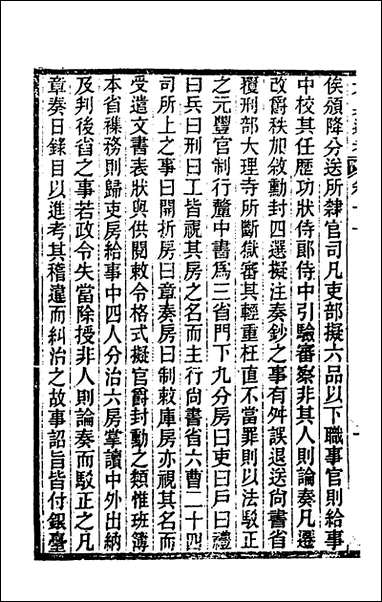 俟頒降分送所隸官司凡吏部擬六品以下職事官則給事
中校其任歷功狀侍郎侍中引驗審察非其人則論奏凡遷
改爵秩加敘勳封四選擬注奏鈔之事有舛誤退送尚書省
覆刑部大理寺所斷獄審其輕重枉直不當罪則以法駁正
之元豐官制行釐中書爲三省門下九分房曰吏曰戶曰禮
曰兵曰刑曰工皆視其房之名而主行尚書省六曹二十四
司所上之事曰開拆房曰章奏房曰制敕庫房亦視其名而
受遣文書表狀與供閱敕令格式擬官爵封勳之類惟班簿
本省襍務則歸吏房給事中四人分治六房掌讀中外出納
及判後省之事若政令失當除授非人則論奏而駁正之凡
章奏日錄目以進考其稽違而糾治之故事詔旨皆付銀臺